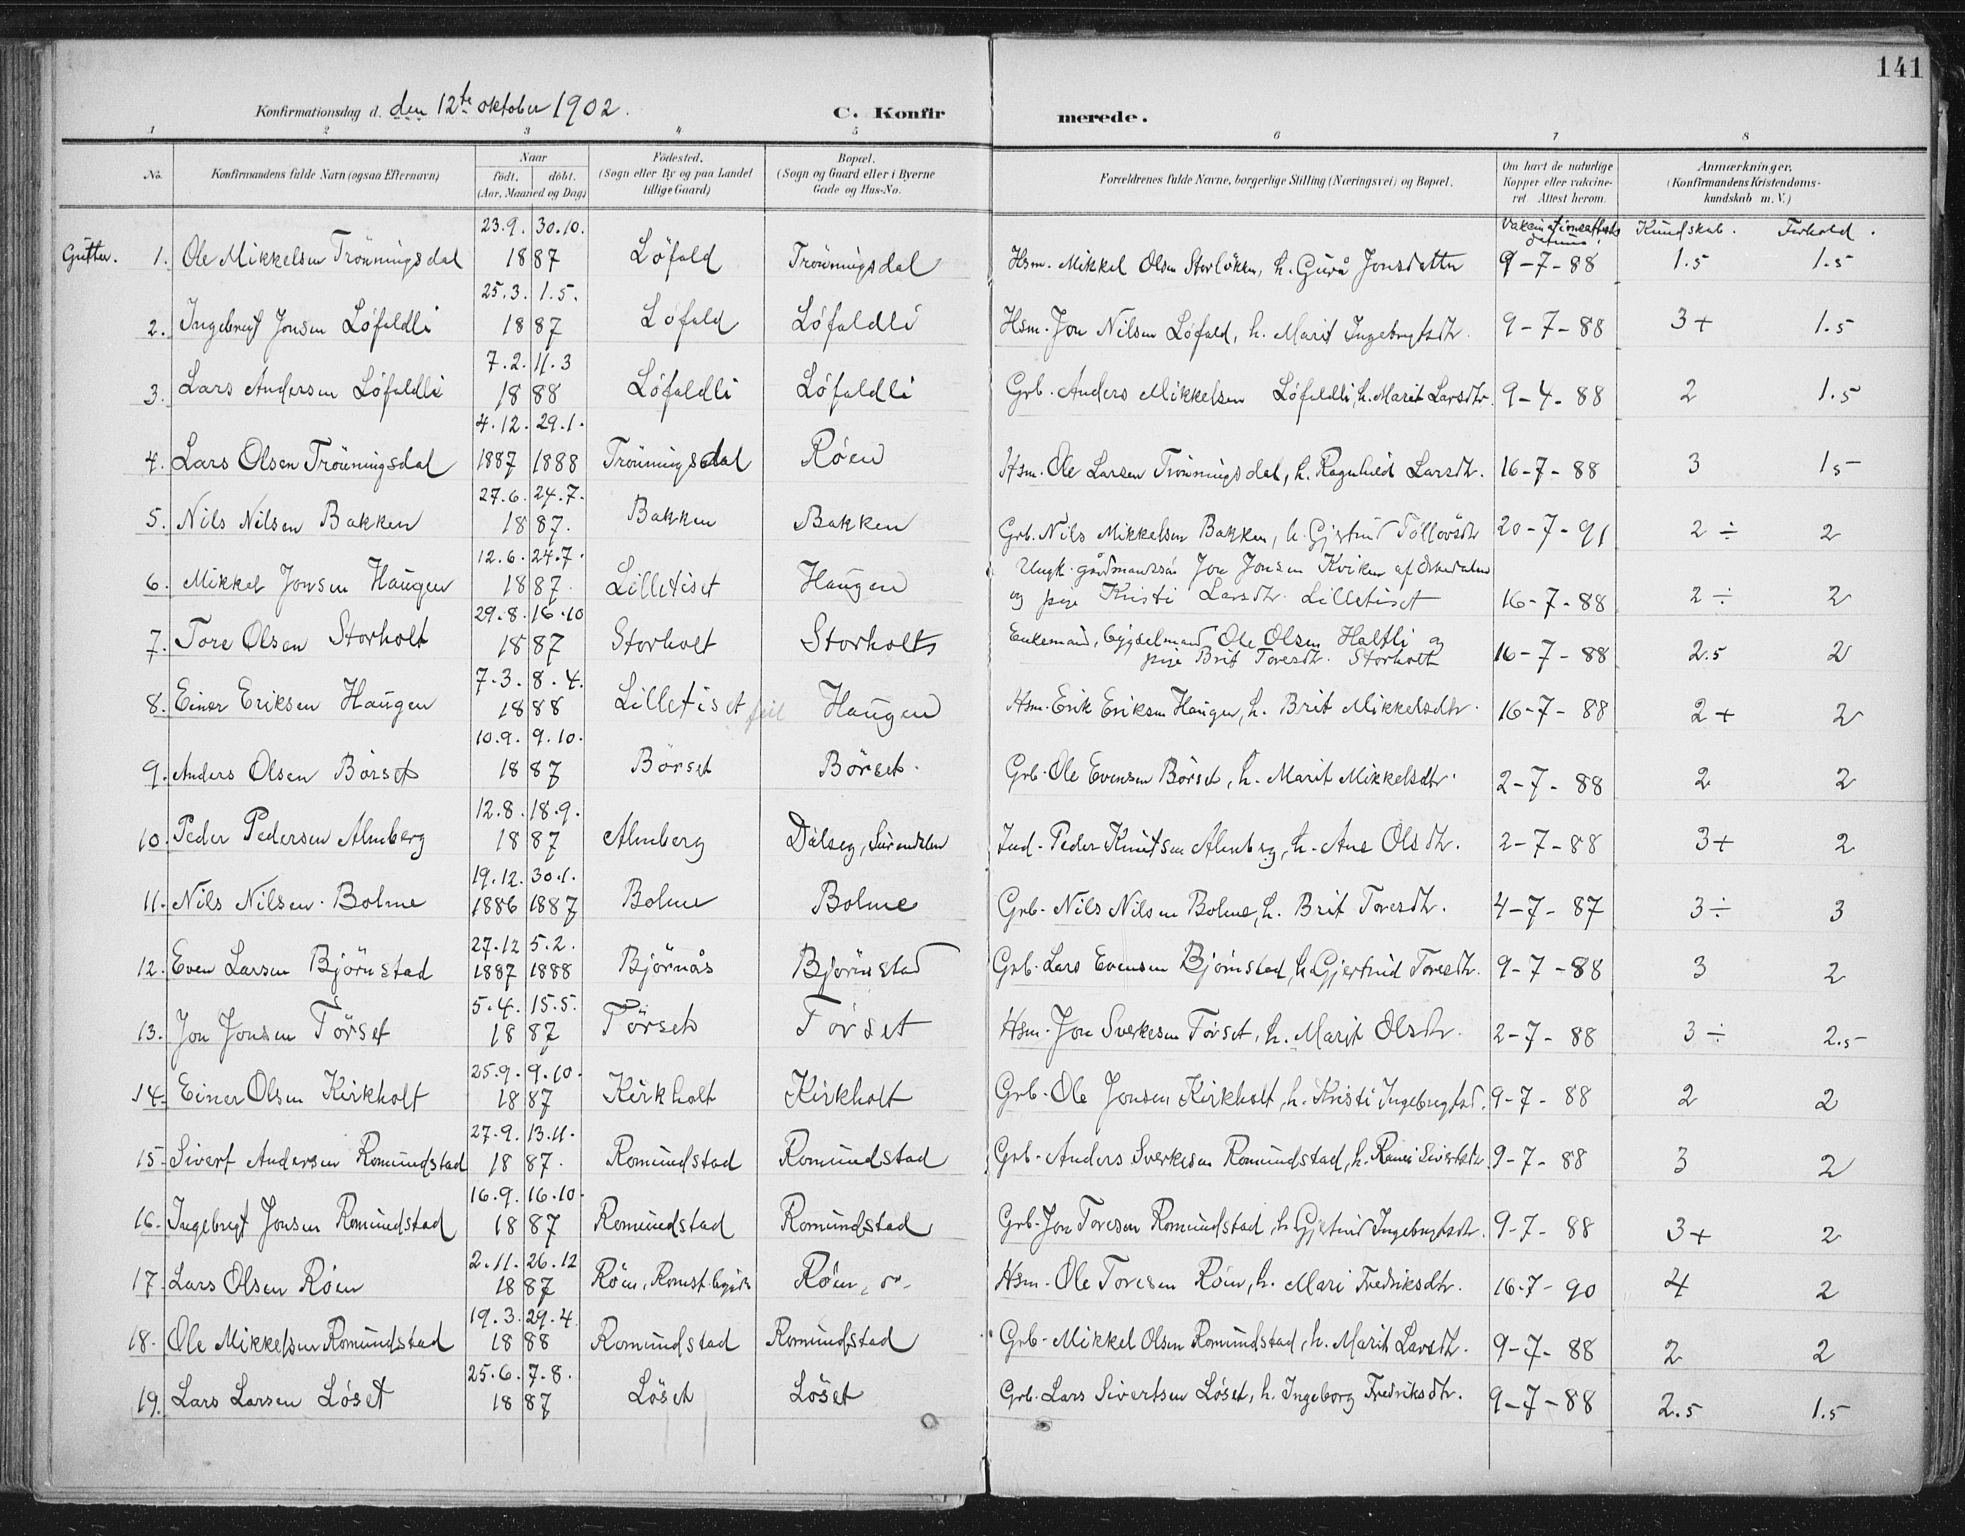 141
Konfirmationsdag d. den 12te oktober 1902.
C. Konfirmerede.
1 2 3 4 5 6 7 8
No. Konfirmandens fulde Navn (ogsaa Efternavn) Naar født. døbt. (Aar, Maaned og Dag) Fødested. (Sogn eller By og paa Landet tillige Gaard) Bopæl. (Sogn og Gaard eller i Byerne Gade og Hus-No. Forældrenes fulde Navne, borgerlige Stilling (Næringsvei) og Bopæl. Om havt de naturlige Kopper eller vakcineret. Attest herom. Anmærkninger. (Konfirmandens Kristendomskundskab m. V.)
Kundskab. Forhold.
Gutter. 1. Ole Mikkelsen Trønningsdal 23.9. 30.10. 1887 Löfald Trönningsdal Hsm. Mikkel Olsen Storløkken, h. Gurå Jonsdatter 9-7-88 1.5 1.5
2. Ingebregt Jonsen Løfaldli 25.3. 1.5. 1887 Løfald Löfaldli Hsm. Jon Nilsen Løfald, h. Marit Ingebrigtsdtr. 9-7-88 3+ 1.5
3. Lars Andersen Löfaldli 7.2. 11.3 1888 Löfaldli Löfaldli Grb. Anders Mikkelsen Løfaldli, h. Marit Larsdtr. 9-4-88 2 1.5
4. Lars Olsen Trönningsdal 4.12. 29.1. 1887 1888 Trönningsdal Røen Hsm. Ole Larsen Trönningsdal, h. Ragnhild Larsdtr. 16-7-88 3 1.5
5. Nils Nilsen Bakken 27.6. 24.7. 1887. Bakken Bakken Grb. Nils Mikkelsen Bakken, h. Gjertrud Tøllevsdtr 20-7-91 2÷ 2
6. Mikkel Jonsen Haugen 12.6. 24.7. 1887. Lilletiset Haugen Ungk. gårdmandssøn Jon Jonsen Kviken af
og pige Kristi Larsdtr. Lilletiset 16-7-88 2÷ 2
7. Tore Olsen Storholt 29.8. 16.10 1887 Storholt Storholt Enkemand, bygselmand Ole Olsen Halfli og
pige Brit Toresdtr. Storholt 16-7-88 2.5 2
8. Einer Eriksen Haugen 7.3. 8.4. 1888 Lilletiset feil Haugen Hsm. Erik Eriksen Haugen, h. Brit Mikkelsdtr. 16-7-88 2+ 2
9. Anders Olsen Børset 10.9. 9.10. 1887 Börset Börset. Grb. Ole Evensen Børset, h. Marit Mikkelsdtr. 2-7-88 2 2
10. Peder Pedersen Almberg 12.8. 18.9. 1887 Almberg Dalseg, Surendalen Ind. Peder Knutsen Almberg, h. Ane Olsdtr. 2-7-88 3+ 2
11. Nils Nilsen Bolme 19.12. 30.1. 1886 1887 Bolme Bolme Grb. Nils Nilsen Bolme, h. Brit Toresdtr. 4-7-87 3÷ 3
12. Even Larsen Björnstad 27.12 5.2. 1887 1888 Björnås Björnstad Grb. Lars Evensen Bjørnstad, h. Gjertrud Toresdtr. 9-7-88 3 2
13. Jon Jonsen Törset 5.4. 15.5. 1887 Törset Törset Hsm. Jon Sverkesen Tørset, h. Marit Olsdtr. 2-7-88 3÷ 2.5
14. Einer Olsen Kirkholt 25.9. 9.10. 1887 Kirkholt Kirkholt Grb. Ole Jonsen Kirkholt, h. Kristi Ingebrigtsd. 9-7-88 2 2
15. Sivert Andersen Romundstad 27.9. 13.11. 1887. Romundstad Romundstad Grb. Anders Sverkesen Romundstad, h. Ranei Sivertsdtr. 9-7-88 3 2
16. Ingebregt Jonsen Romundstad 16.9. 16.10. 1887 Romundstad Romundstad Grb. Jon Toresen Romundstad, h. Gjertrud Ingebrigtsdtr. 9-7-88 3+ 2
17. Lars Olsen Røen 2.11. 26.12 1887 Røen, Romst. Røen, Hsm. Ole Toresen Røen, h. Mari Fredriksdtr. 16-7-90 4 2
18. Ole Mikkelsen Romundstad 19.3. 29.4. 1888 Romundstad Romundstad Grb. Mikkel Olsen Romundstad, h. Marit Larsdtr. 9-7-88 2 2
19. Lars Larsen Løset 25.6. 7.8. 1887 Löset Löset Grb. Lars Sivertsen Løset, h. Ingeborg Fredriksdtr. 9-7-88 2.5 1.5